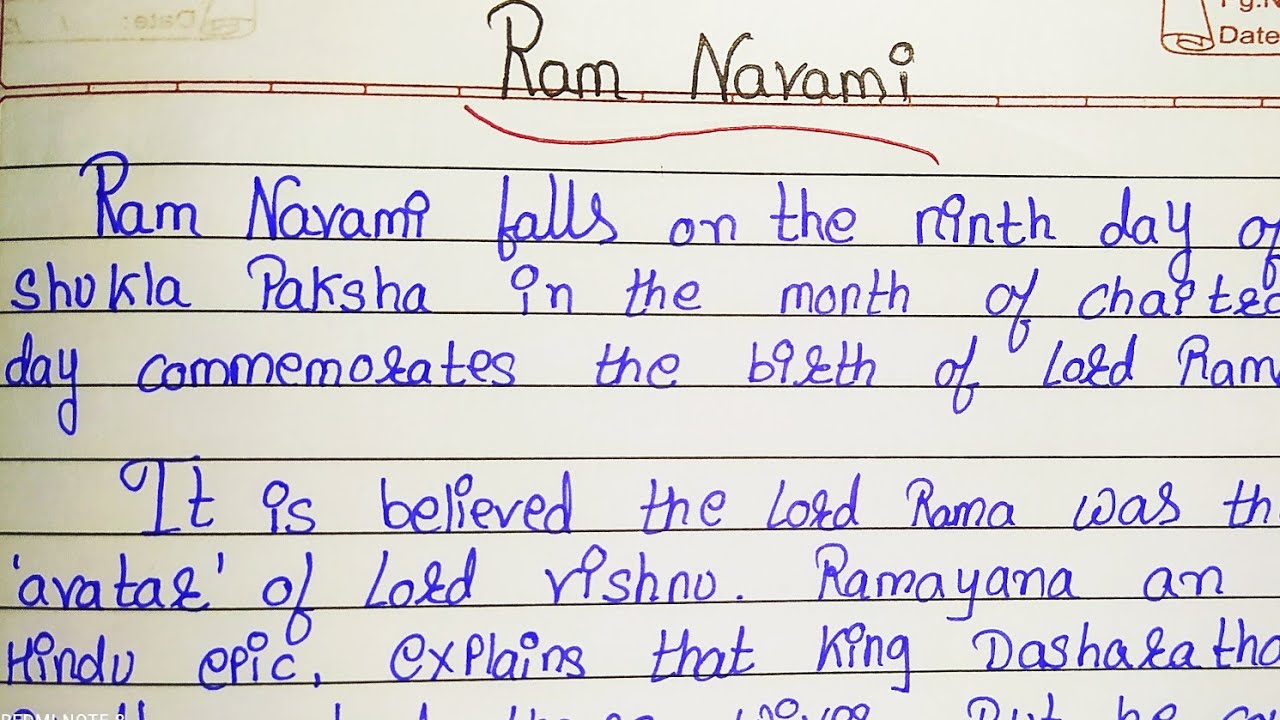 Date:
Ram Navami
Ram Navami falls on the ninth day of
Shukla Paksha in the month of
day commemorates the birth of Lord Ram
It is believed the Lord Rama was
'avatar' of Lord vishnu. Ramayana an
Hindu epic, explains that King Dasharatha